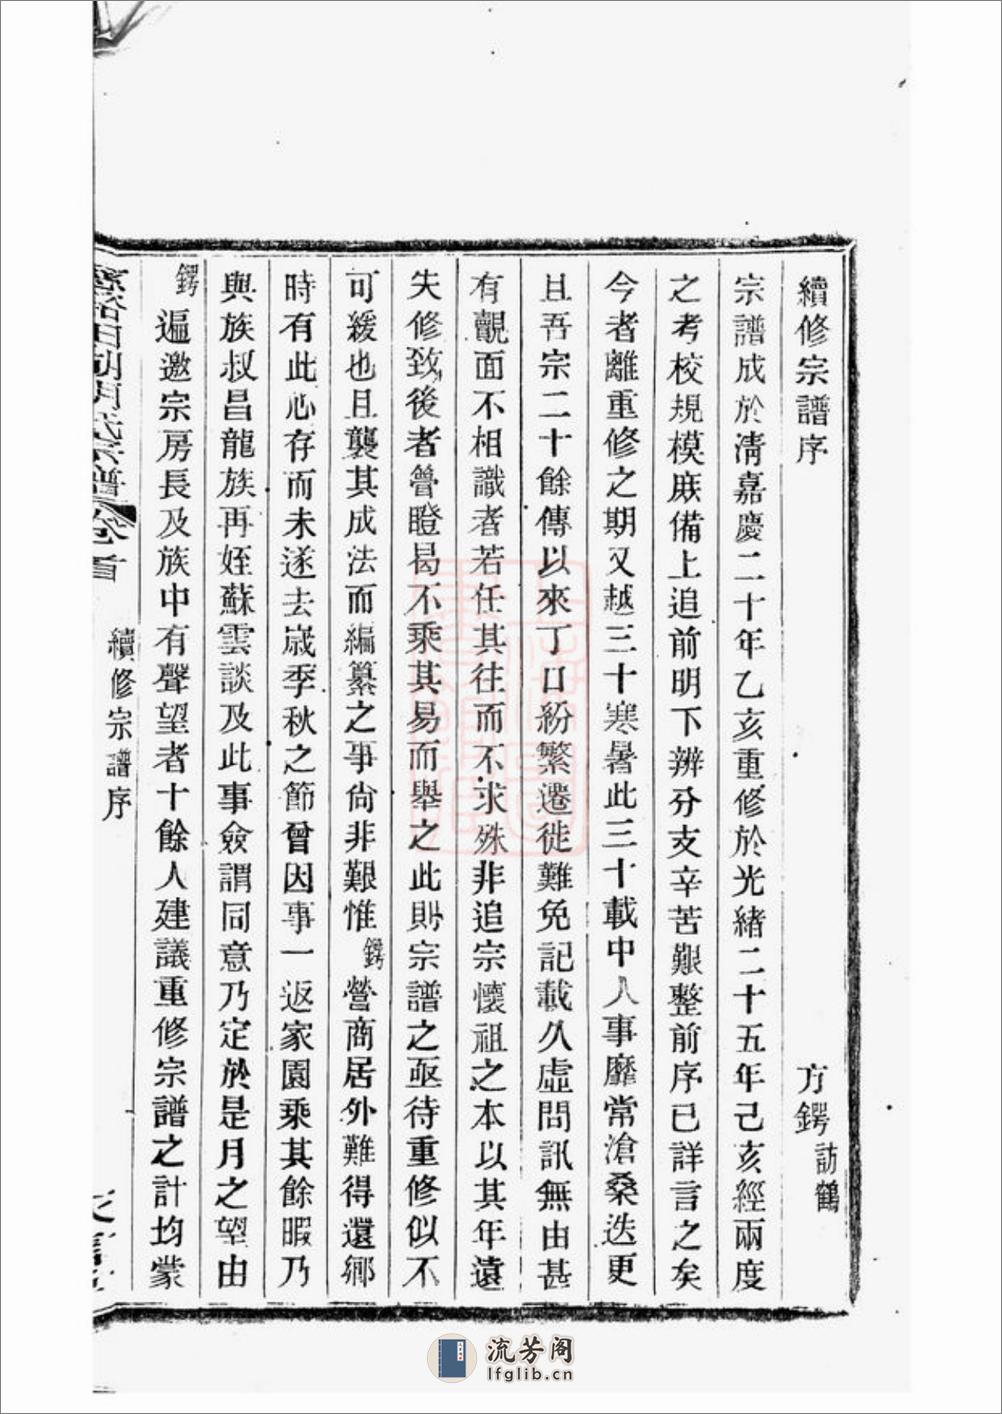 續修宗譜序
方鍔訪鶴
宗譜成於淸嘉慶二十年乙亥重修於光緒二十五年己亥經兩度
之考校規模庶備上追前明下辨分支辛苦艱整前序已詳言之矣
今者離重修之期又越三十寒暑此三十載中人事靡常滄桑迭更
且吾宗二十餘傳以來丁口紛繁遷徙難免記載久虛問訊無由甚
有覿面不相識者若任其往而不求殊非追宗懷祖之本以其年遠
失修致後者瞢瞪曷不乘其易而舉之此則宗譜之亟待重修似不
可緩也且襲其成法而編纂之事尙非艱惟鍔營商居外難得還鄉
時有此心存而未遂去歲季秋之節曾因事一返家園乘其餘暇乃
與族叔昌龍族再姪蘇雲談及此事僉謂同意乃定於是月之望由
鍔遍邀宗房長及族中有聲望者十餘人建議重修宗譜之計均蒙
宗譜 卷首
續修宗譜序
流芳阁
lfglib.cn